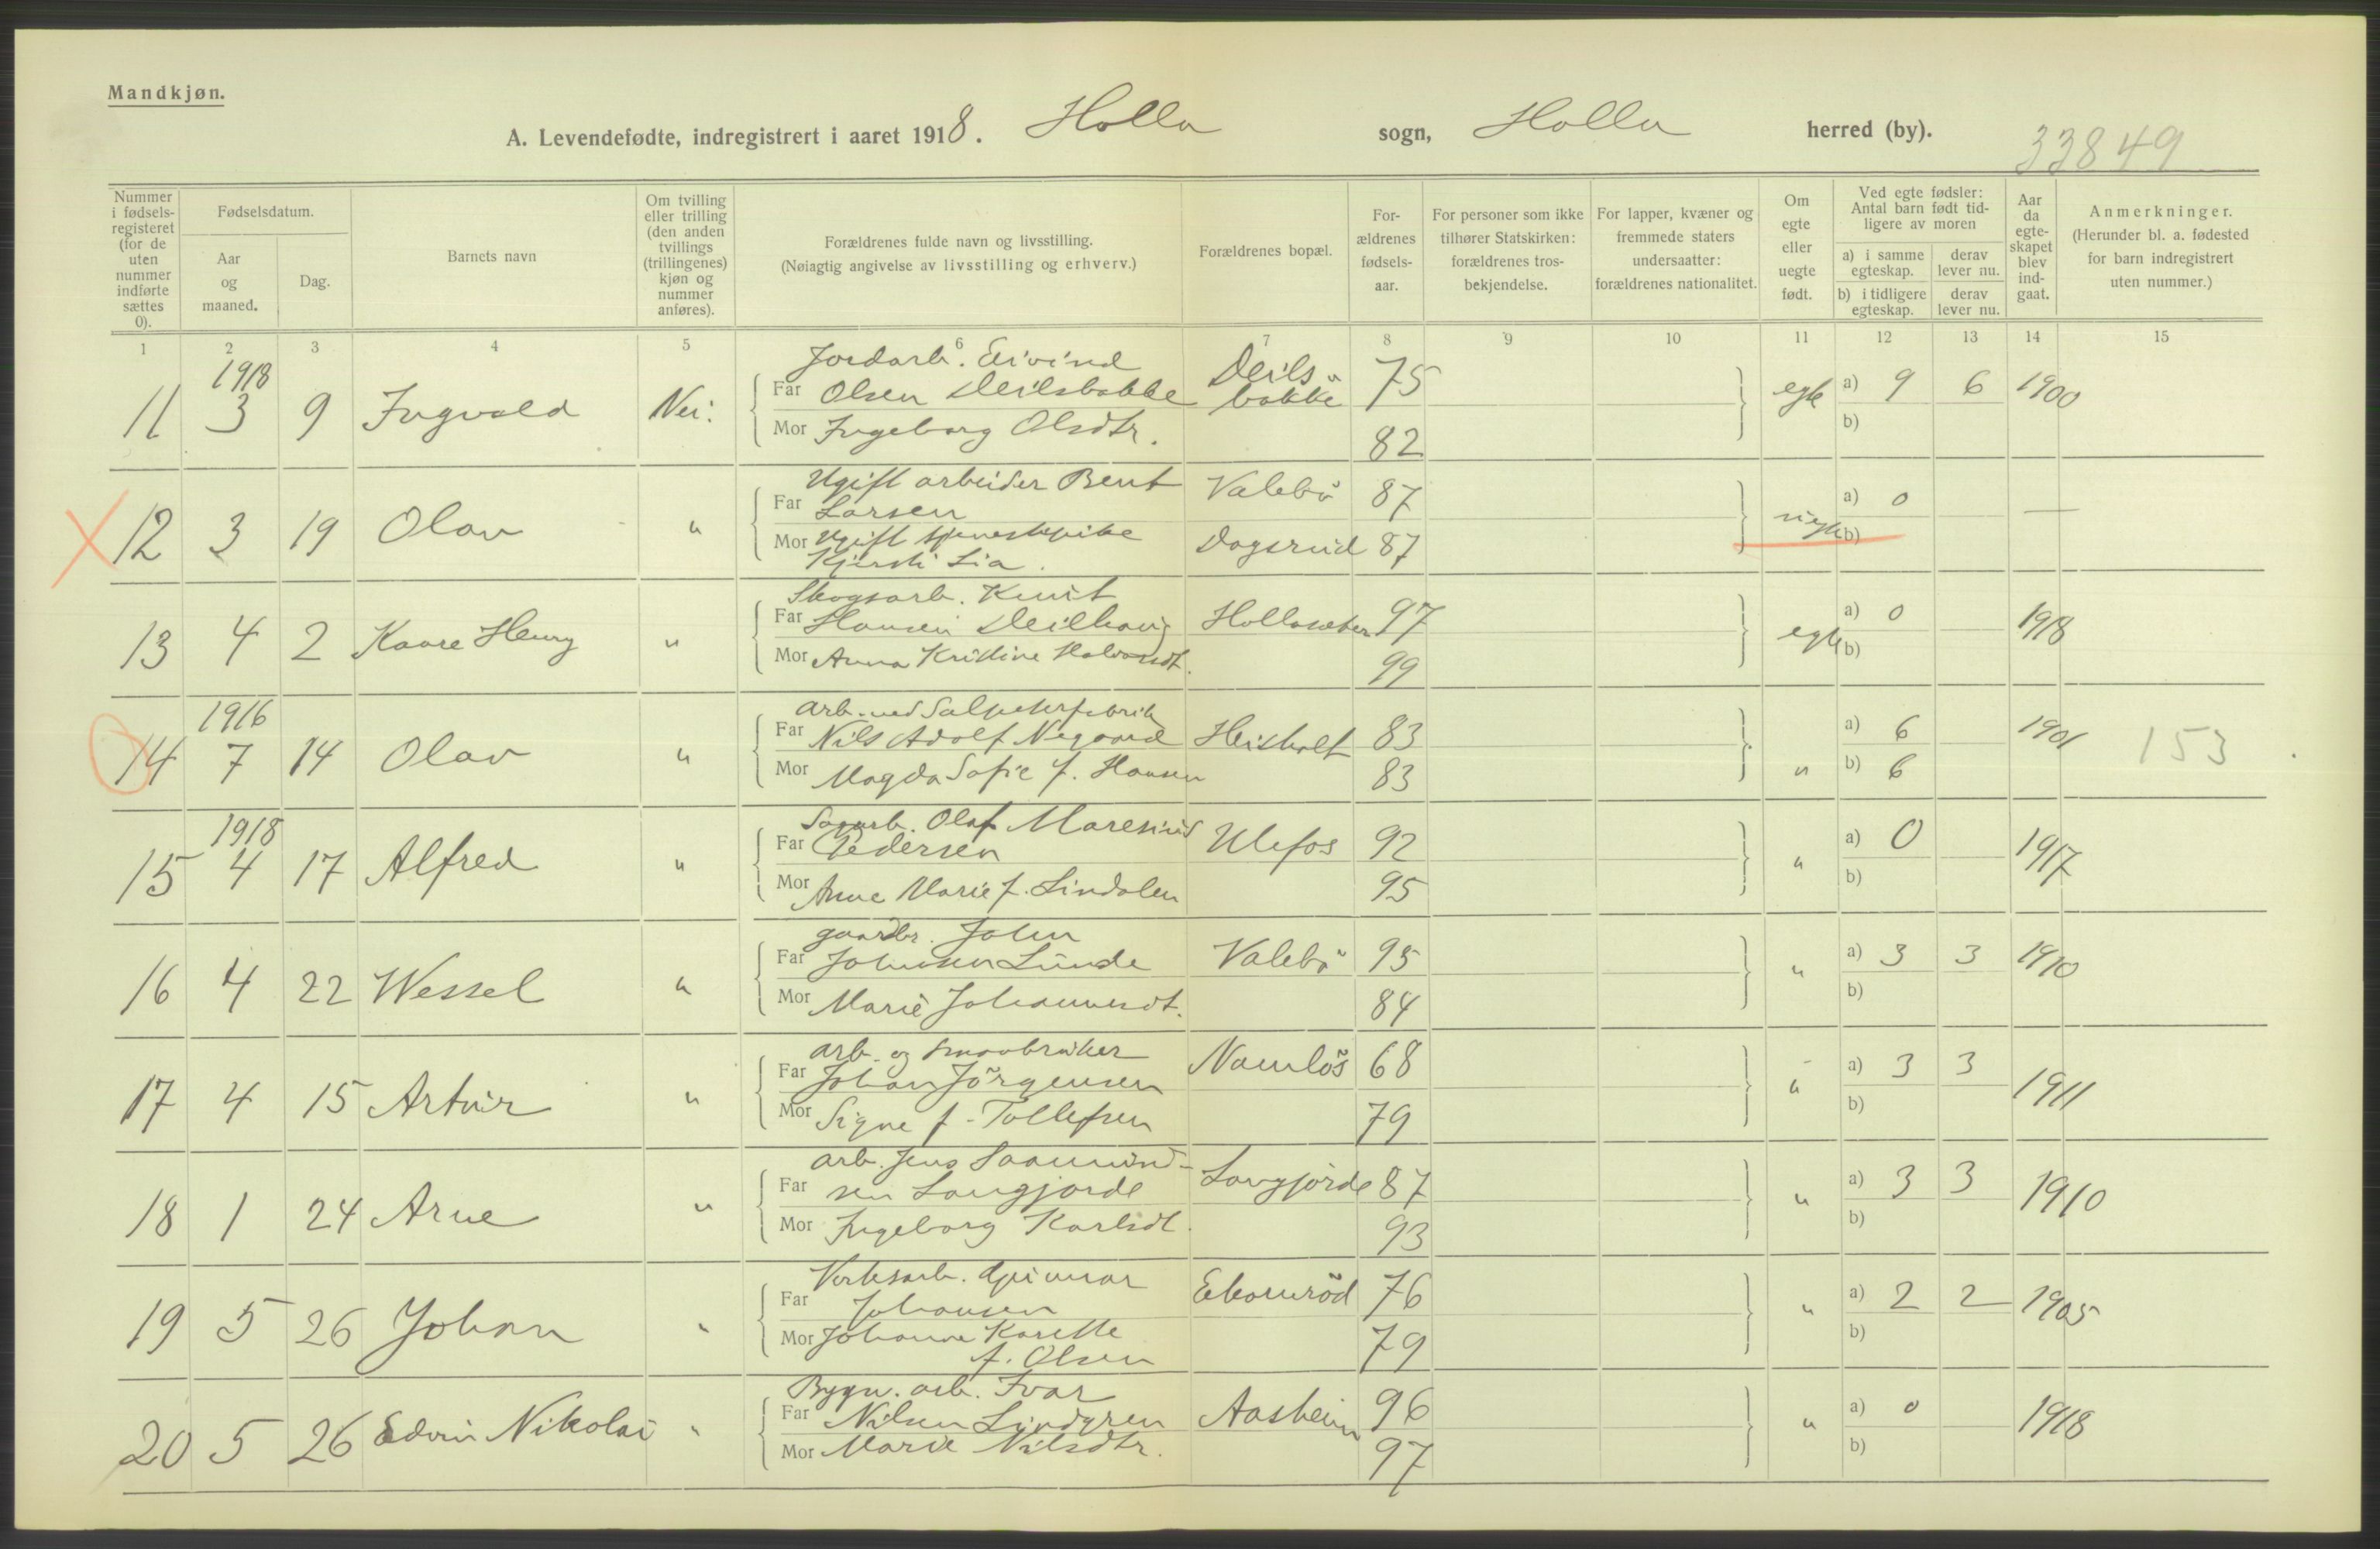 Mandkjøn.
A. Levendefødte, indregistrert i aaret 1918. Holla sogn, Holla herred (by). 33849
Nummer i fødselsregisteret (for de uten nummer indførte sættes 0).
Fødselsdatum.
Aar og maaned.
Dag.
Barnets navn
Om tvilling eller trilling (den anden tvillings (trillingenes) kjøn og nummer anføres).
Forældrenes fulde navn og livsstilling.
(Nøiagtig angivelse av livsstilling og erhverv.)
Forældrenes bopæl.
For-ældrenes fødsels-aar.
For personer som ikke tilhører Statskirken: forældrenes tros-bekjendelse.
For lapper, kvæner og fremmede staters undersaatter: forældrenes nationalitet.
Om egte eller uegte født.
Ved egte fødsler: Antal barn født tid-ligere av moren
a) i samme egteskap.
derav lever nu.
b) i tidligere egteskap.
derav lever nu.
Aar da egte-skapet blev ind-gaat.
Anmerkninger.
(Herunder bl. a. fødested for barn indregistrert uten nummer.)
1 2 3 4 5 6 7 8 9 10 11 12 13 14 15
1918
Jordarb. Eivind
11 3 9 Ingvald Nei. Far Olsen Deilsbakke Deilsbakke 75 egte a) 9 6 1900
Mor Ingeborg Olsdtr. 82 b)
Ugift arbeider Bent
12 3 19 Olav " Far Larsen Valebö 87 uegte a) 0 —
Mor Ugift tjenestepike Dagsrud 87 b)
Kjersti Lia.
Skogsarb. Knut
13 4 2 Kaare Henry " Far Hansen Deilhaug Hollasæter 97 egte a) 0 1918
Mor Anna Kristine Halvorsdt. 99 b)
1916
arb. ved Salpeterfabrik
14 7 14 Olav " Far Nils Adolf Nygaard Heisholt 83 a) 6 1901 153
Mor Magda Sofie f. Hansen 83 " b) 6
1918
Sagarb. Olaf Maresius
15 4 17 Alfred " Far Pedersen Ulefos 92 " a) 0 1917
Mor Anne Marie f. Lindalen 95 b)
gaardbr. John
16 4 22 Wessel " Far Johnsen Lunde Valebö 95 " a) 3 3 1910
Mor Marie Johannesdt. 84 b)
arb. og smaabruker
17 4 15 Artur " Far Johan Jörgensen Namlös 68 " a) 3 3 1911
Mor Signe f. Tollefsen 79 b)
arb. Jens Saamund-
18 1 24 Arne " Far sen Langjorde Langjorde 87 " a) 3 3 1910
Mor Ingeborg Karlsdt. 93 b)
Verksarb. Gunnar
19 5 26 Johan " Far Johansen Ekornröd 76 " a) 2 2 1905
Mor Johanne Karette 79 b)
f. Olsen
Bygn. arb. Ivar
20 5 26 Edvin Nikolai " Far Nilsen Lindgren Aasheim 96 " a) 0 1918
Mor Marie Nilsdtr. 97 b)